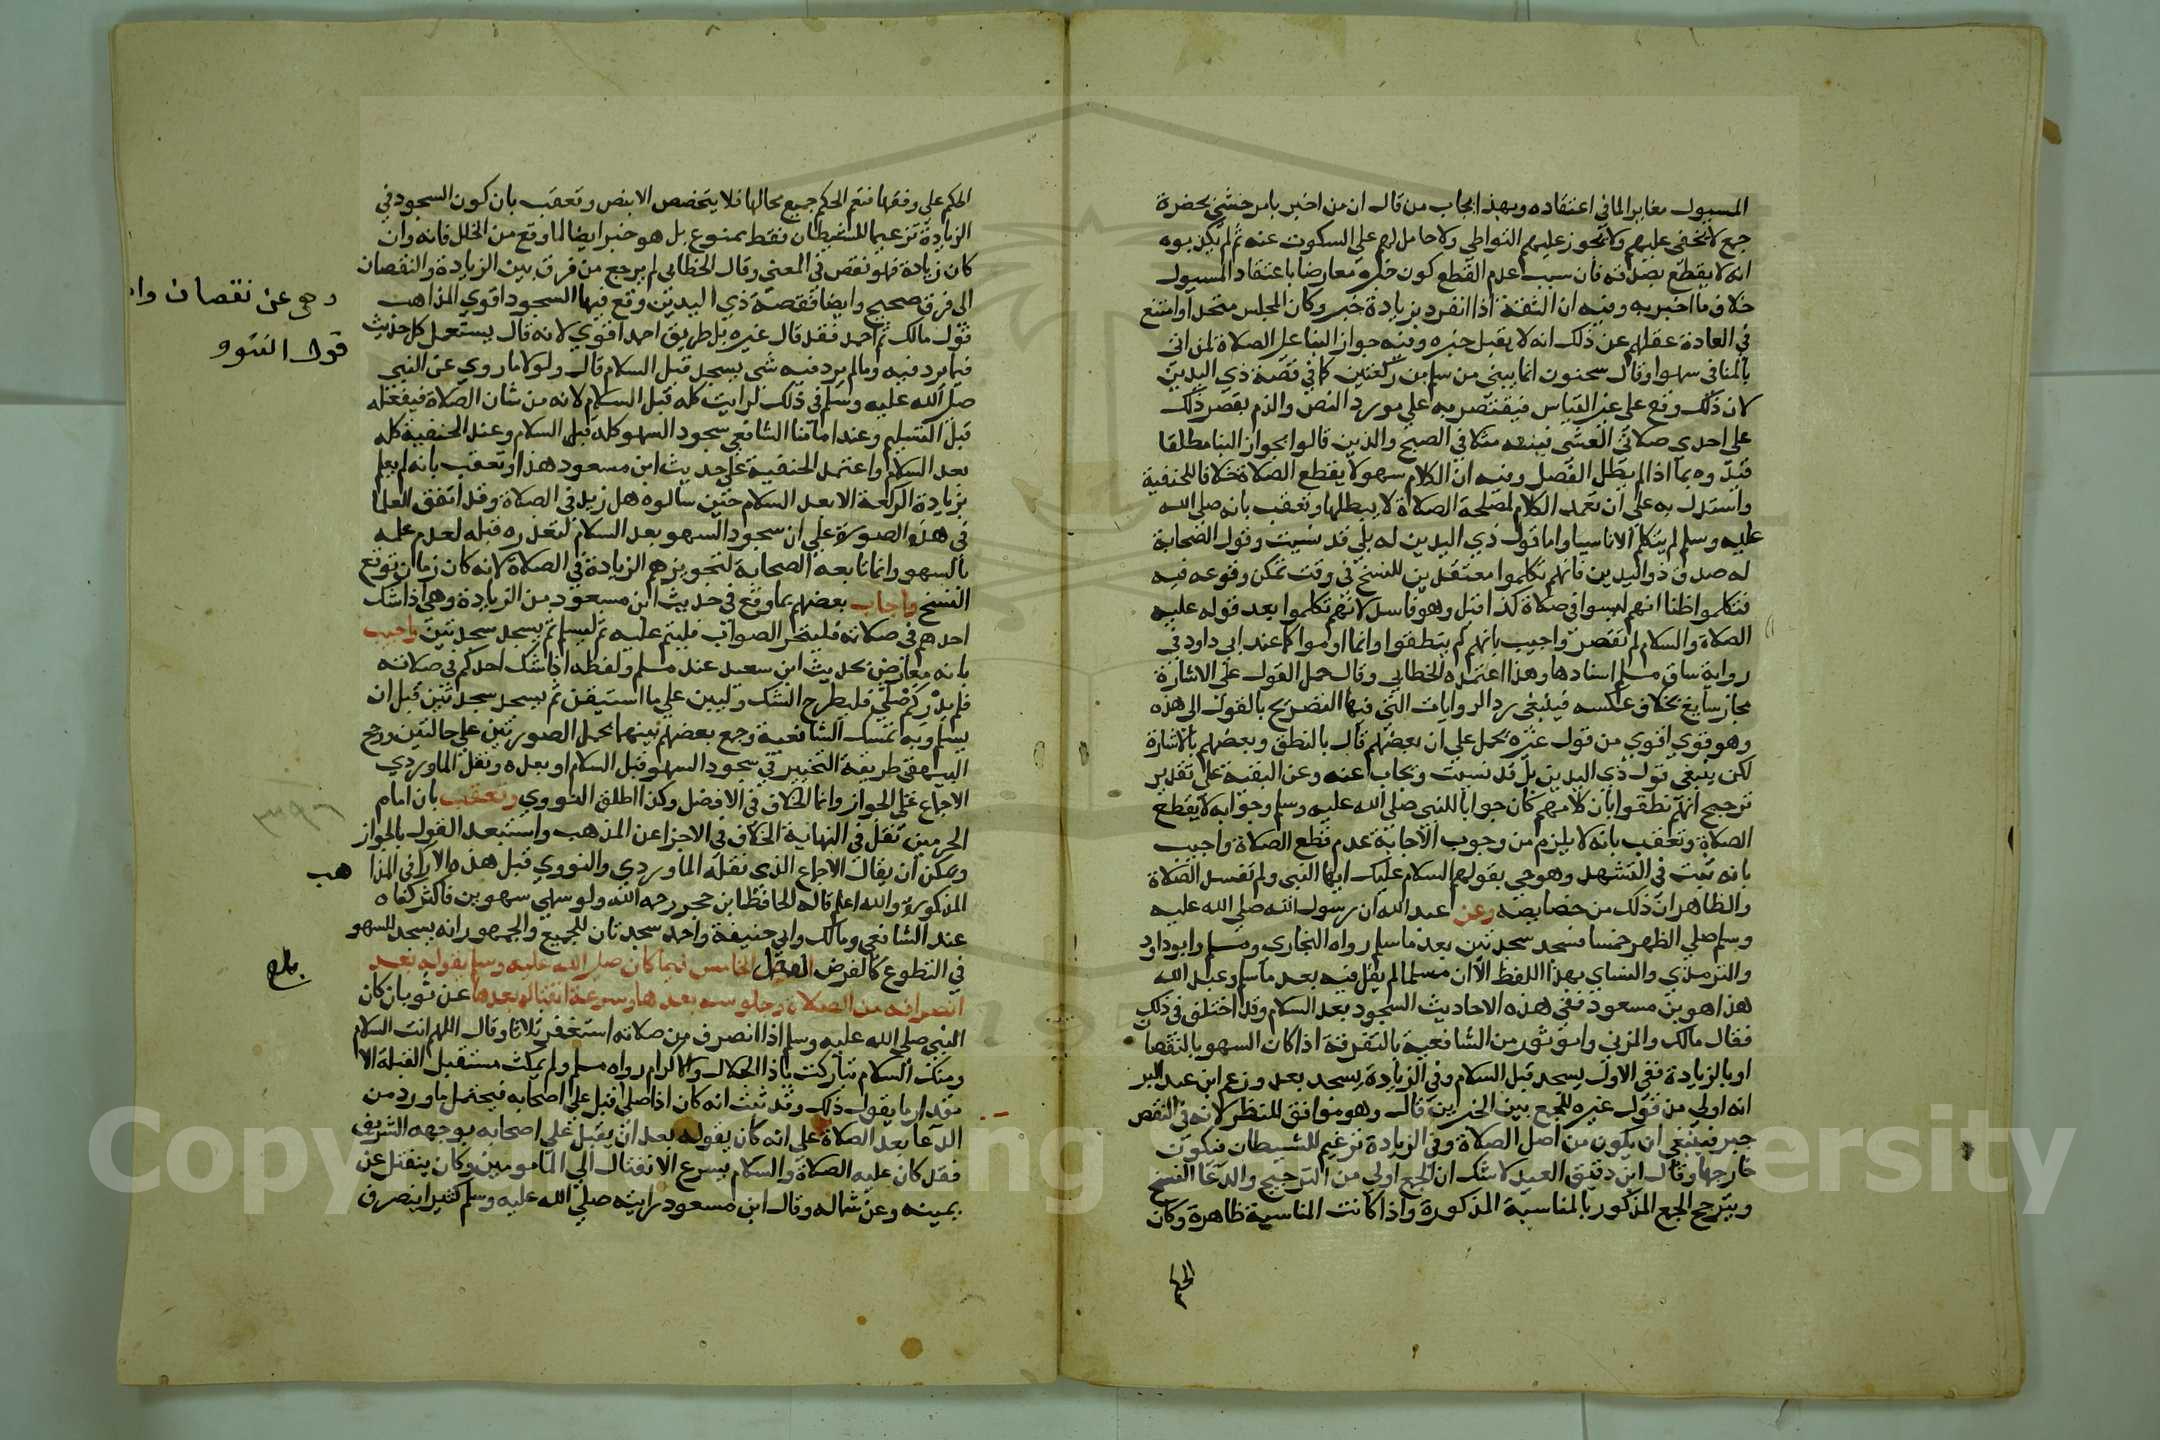 المسيول مغايرا لما في اعتقاده وبهذا يجاب من قال ان من اخبر بامر حسي بحضرة
جمع لا يخفى عليهم ولا يجوز عليهم التواطي ولا حامل لهم على السكوت عنه ثم لم يكذبوه
انه لا يقطع بصدقه فان سبب عدم القطع كون خبره معارضا باعتقاد المسيول
خلاف ما اخبر به وفيه ان الثقة اذا انفرد بزيادة خبر وكان المجلس متحدا وامتنع
في العادة غفلتهم عن ذلك انه لا يقبل خبره وفيه جواز البنا على الصلاة لمن اتى
بالمنافي سهوا وقال سحنون انما يبني من سلم من ركعتين كما في قصة ذي اليدين
لان ذلك وقع على غير القياس فيقتصر به على مورد النص والزم بقصر ذلك
على احدي صلاتي العشي فيمنعه مثلا في الصبح والذين قالوا بجواز البنا مطلقا
قيدوه بما اذا لم يطل الفصل وفيه ان الكلام سهوا لا يقطع الصلاة خلافا للحنفية
واستدل به على ان تعمد الكلام لمصلحة الصلاة لا يبطلها وتعقب بانه صلى الله
عليه وسلم لم يتكلم الا ناسيا واما قول ذي اليدين له بلي قد نسيت وقول الصحابة
له صدق ذو اليدين فانهم تكلموا معتقدين للنسخ في وقت تمكن وقوعه فيه
فتكلموا ظنا انهم ليسوا في صلاة كذا قيل وهو فاسد لانهم تكلموا بعد قوله عليه
الصلاة والسلام لم تقصر واجيب بانهم لم ينطقوا وانما اوموا كما عند ابي داود في
رواية ساق مسلم اسنادها وهذا اعتمده الخطابي وقال حمل القول على الاشارة
مجاز سايغ بخلاف عكسه فينبغي رد الروايات التي فيها التصريح بالقول الى هذه
وهو قوي اقوي من قول غيره يحمل على ان بعضهم قال بالنطق وبعضهم بالاشارة
لكن ينبغي قول ذي اليدين بل قد نسيت ويجاب عنه وعن البقية على تقدير
ترجيح انهم نطقوا بان كلامهم كان جوابا للنبي صلى الله عليه وسلم وجوابه لا يقطع
الصلاة وتعقب بانه لا يلزم من وجوب الاجابة عدم قطع الصلاة واجيب
بانه ثبت في التشهد وهو حي بقولهم السلام عليك ايها النبي ولم تفسد الصلاة
والظاهر ان ذلك من خصايصه وعن عبد الله ان رسول الله صلى الله عليه
وسلم صلى الظهر خمسا فسجد سجدتين بعد ما سلم رواه البخاري ومسلم وابو داود
والترمذي والنساي بهذا اللفظ الا ان مسلما لم يقل فيه بعد ما سلم وعبد الله
هذا هو بن مسعود ففي هذه الاحاديث السجود بعد السلام وقد اختلف في ذلك
فقال مالك والمزني وابو ثور من الشافعية بالتفرقة اذا كان السهو بالنقصان
او بالزيادة ففي الاول يسجد قبل السلام وفي الزيادة يسجد بعد وزعم ابن عبد البر
انه اولي من قول غيره للجمع بين الخبرين قال وهو موافق للنظر لانه في النقص
جبر فينبغي ان يكون من اصل الصلاة وفي الزيادة ترغيم للشيطان فيكون
خارجها وقال ابن دقيق العيد لا شك ان الجمع اولي من الترجيح وادعا النسخ
ويترجح الجمع المذكور بالمناسبة المذكورة واذا كانت المناسبة ظاهرة وكان
الحكم
الحكم على وفقها فيعم الحكم جميع محالها فلا يتخصص الا بنص وتعقب بان كون السجود في
الزيادة ترغيما للشيطان فقط ممنوع بل هو جبر ايضا لما وقع من الخلل فانه وان
كان زيادة فهو نقص في المعنى وقال الخطابي لم يرجع من فرق بين الزيادة والنقصان
الى فرق صحيح وايضا فقصة ذي اليدين وقع فيها السجود اقوي المذاهب
قول مالك ثم احمد فقد قال غيره بل طريق احمد اقوي لانه قال يستعمل كل حديث
فيما يرد فيه وما لم يرد فيه شي يسجد قبل السلام قال ولولا ما روي عن النبي
صلى الله عليه وسلم في ذلك لرايت كله قبل السلام لانه من شان الصلاة فيفعله
قبل التسليم وعند امامنا الشافعي سجود السهو كله قبل السلام وعند الحنفية كله
بعد السلام واعتمد الحنفية على حديث ابن مسعود هذا وتعقب بانه لم يعلم
بزيادة الركعة الا بعد السلام حين سالوه هل زيد في الصلاة وقد اتفق العلما
في هذه الصورة على ان سجود السهو بعد السلام لتعذره قبله لعدم علمه
بالسهو وانما تابعه الصحابة لتجويزهم الزيادة في الصلاة لانه كان زمان توقع
النسخ واجاب بعضهم بما وقع في حديث ابن مسعود من الزيادة وهي اذا شك
احدهم في صلاته فليتحر الصواب فليتم عليه ثم ليسلم ثم يسجد سجدتين واجيب
بانه معارض بحديث ابن سعيد عند مسلم ولفظه اذا شك احدكم في صلاته
فلم يدر كم صلى فليطرح الشك وليبن على ما استيقن ثم يسجد سجدتين قبل ان
يسلم وبه تمسك الشافعية وجمع بعضهم بينهما بحمل الصورتين على حالتين ورجح
البيهقي طريقة التخيير في سجود السهو قبل السلام او بعده ونقل الماوردي
الاجماع على الجواز وانما الخلاف في الافضل وكذا اطلق النووي وتعقب بان امام
الحرمين نقل في النهاية الخلاف في الاجزا عن المذهب واستبعد القول بالجواز
ويمكن ان يقال الاجماع الذي نقله الماوردي والنووي قبل هذه الارا في المذا هب
المذكورة والله اعلم قاله الحافظ ابن حجر رحمه الله ولو سهي سهوين فاكثر كفاه
عند الشافعي ومالك وابي حنيفة واحمد سجدتان للجميع والجمهور انه يسجد للسهو
في التطوع كالفرض الفصل الخامس فيما كان صلى الله عليه وسلم يقوله بعد
انصرافه من الصلاة وجلوسه بعدها وسرعة انتقاله بعدها عن ثوبان كان
النبي صلى الله عليه وسلم اذا انصرف من صلاته استغفر ثلاثا وقال اللهم انت السلام
ومنك السلام تباركت يا ذا الجلال والاكرام رواه مسلم ولم يمكث مستقبل القبلة الا
مقدار ما يقول ذلك وقد ثبت انه كان اذا صلى اقبل على اصحابه فيحتمل ما ورد من
الدعا بعد الصلاة على انه كان يقوله بعد ان يقبل على اصحابه بوجهه الشريف
فقد كان عليه الصلاة والسلام يسرع الانفتال الى المامومين وكان ينفتل عن
يمينه وعن شماله وقال ابن مسعود رايته صلى الله عليه وسلم كثيرا ينصرف
وهي عن نقصان وا
قول النوو
بلغ